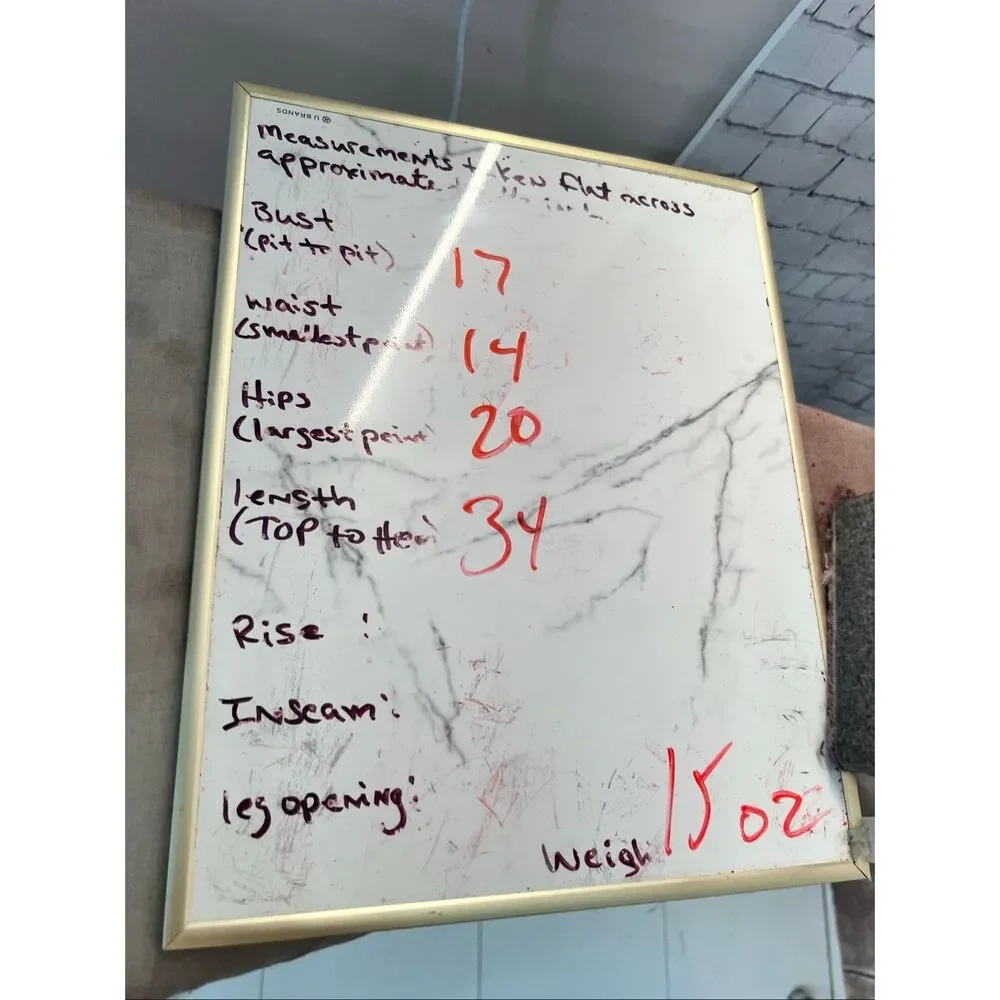 U BRANDS
Measurements taken flat across
approximate
Bust
(pit to pit) 17
waist
(smallest point) 14
Hips
(largest point 20
length
(TOP to Hem) 34
Rise :
Inseam:
leg opening:
Weigh 15 oz